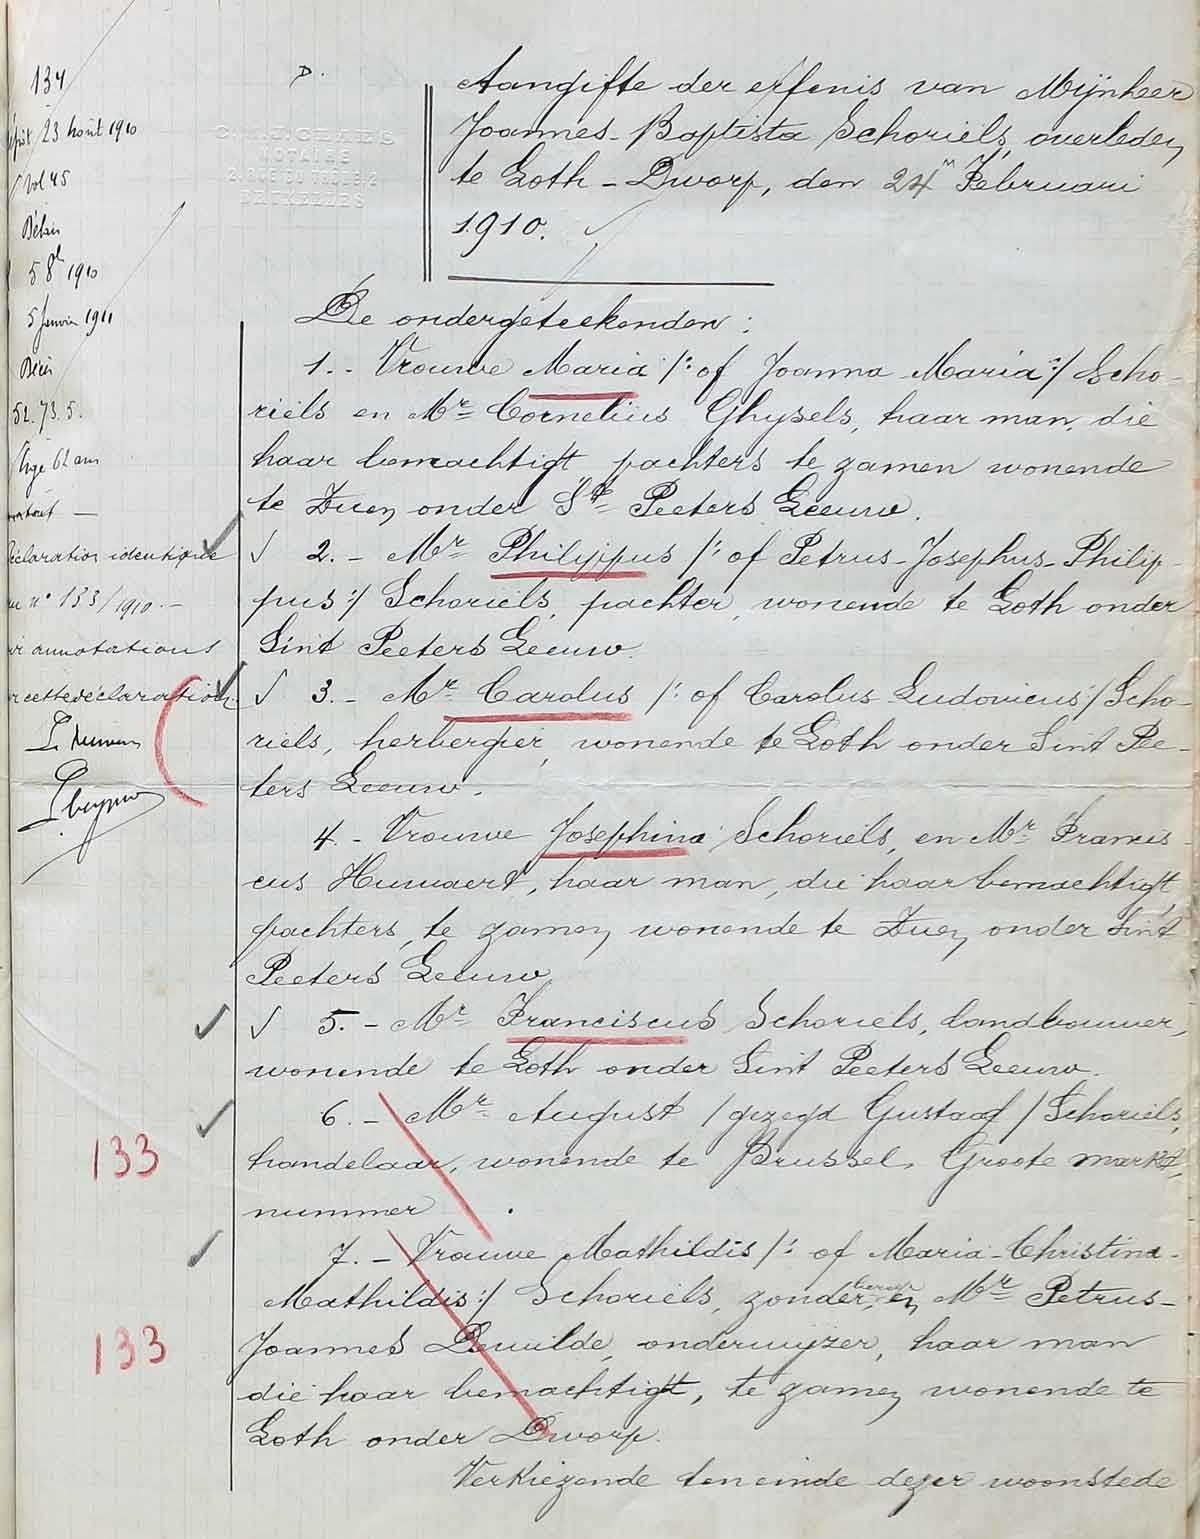 134
23 août 1910
Vol 45
Délais
5 8b 1910
5 Janvier 1911
Décès
52. 73. 5.
Agé 62 ans
Déclaration identique
au n° 133/1910. -
annotations
cette déclaration
133
133
D.
NOTAIRE
BRUXELLES
Aangifte der erfenis van Mijnheer
Joannes-Baptista Schoriels, overleden
te Loth-Dworp, den 24n Februari
1910.
De ondergeteekenden :
1. - Vrouwe Maria /: of Joanna Maria :/ Scho-
riels en Mr Cornelius Ghysels, haar man, die
haar bemachtigt, pachters te zamen wonende
te Zuen onder St Peeters Leeuw.
√ 2. - Mr Philippus /: of Petrus-Josephus-Philip-
pus :/ Schoriels, pachter, wonende te Loth onder
Sint Peeters Leeuw.
√ 3. - Mr Carolus /: of Carolus Ludovicus :/ Scho-
riels, herbergier, wonende te Loth onder Sint Pee-
ters Leeuw.
4. - Vrouwe Josephina Schoriels, en Mr Francis-
cus Huwaert, haar man, die haar bemachtigt,
pachters, te zamen wonende te Zuen onder Sint
Peeters Leeuw
√ 5. - Mr Franciscus Schoriels, landbouwer,
wonende te Loth onder Sint Peeters Leeuw.
6. - Mr August /gezegd Gustaaf/ Schoriels,
handelaar, wonende te Brussel, Groote Markt,
nummer .
7. - Vrouwe Mathildis /: of Maria-Christina-
Mathildis :/ Schoriels, zonder beroep, en Mr Petrus-
Joannes Dewilde, onderwijzer, haar man
die haar bemachtigt, te zamen wonende te
Loth onder Dworp.
Verkiezende ten einde dezer woonstede